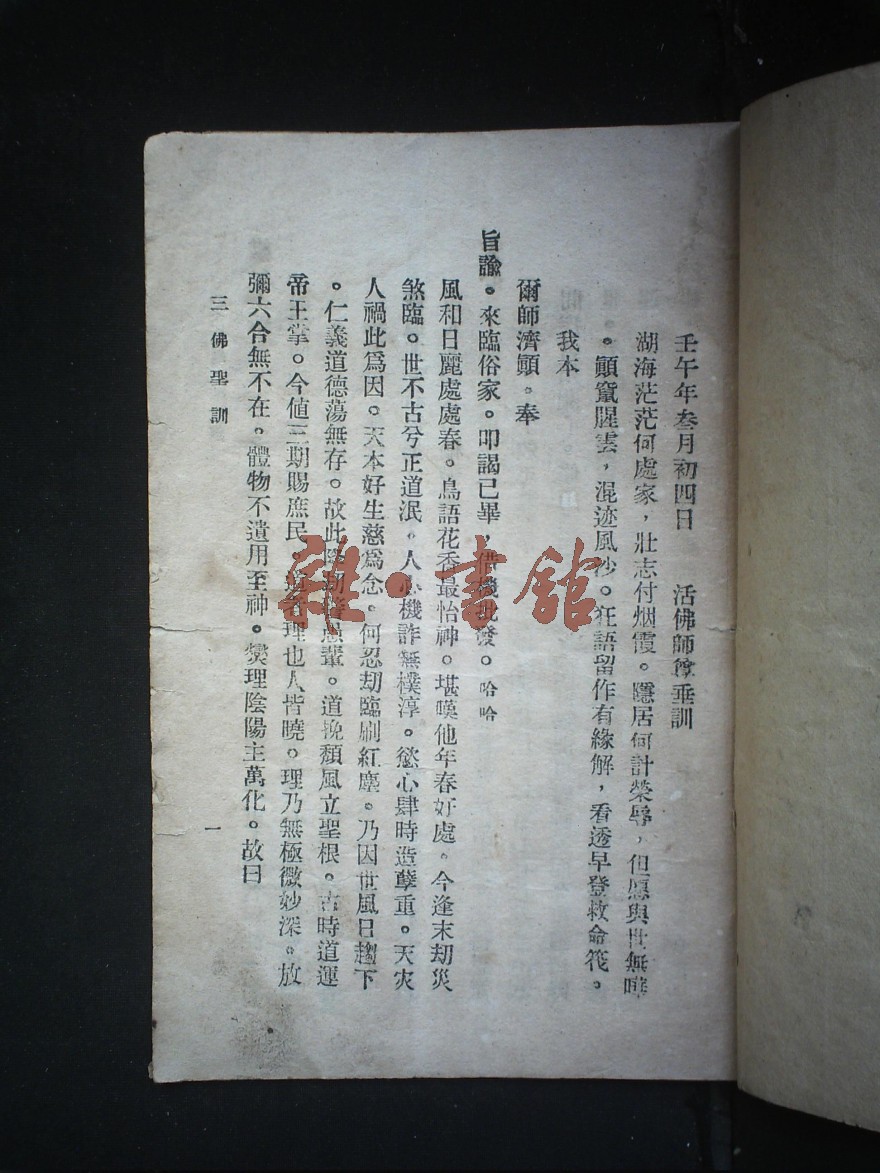 壬午年叁月初四日　活佛師尊垂訓
湖海茫茫何處家，壯志付烟霞。隱居何計榮辱，但愿與世無嘩
。顚竄腥雲，混迹風沙。狂語留作有緣解，看透早登救命筏。
我本
爾師濟顚。奉
旨諭。來臨俗家。叩謁已畢，借機批發。哈哈
風和日麗處處春。鳥語花香最怡神。堪嘆他年春好處。今逢末劫災
煞臨。世不古兮正道泯。人心機詐無樸淳。慾心肆時造孽重。天灾
人禍此爲因。天本好生慈爲念。何忍劫臨刷紅塵。乃因世風日趨下
。仁義道德蕩無存。故此降劫警愚輩。道挽頽風立聖根。古時道運
帝王掌。今値三期賜庶民。道者理也人皆曉。理乃無極微妙深。放
彌六合無不在。體物不遺用至神。燮理陰陽主萬化。故曰
三佛聖訓　一
雜·書館